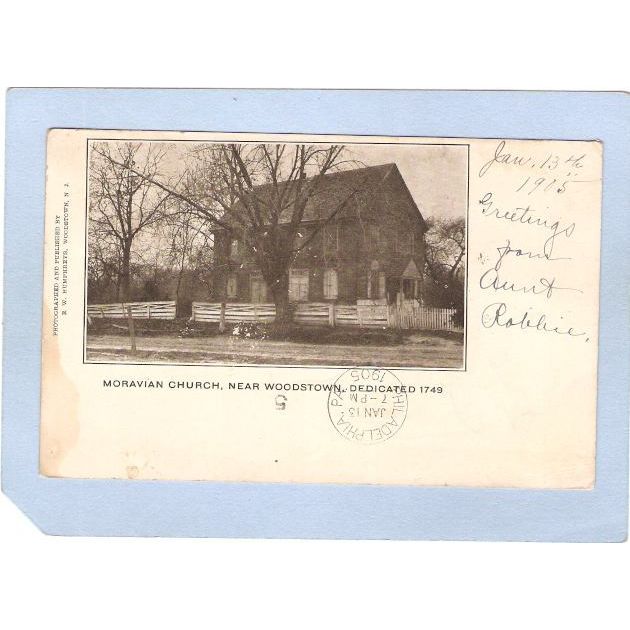 PHOTOGRAPHED AND PUBLISHED BY
R. W. HUMPHREYS, WOODSTOWN, N. J.
Jan. 13th
1905
Greetings
from
Aunt
Robbie.
MORAVIAN CHURCH, NEAR WOODSTOWN, DEDICATED 1749
5
PHILADELPHIA, PA.
JAN 13
7-PM
1905